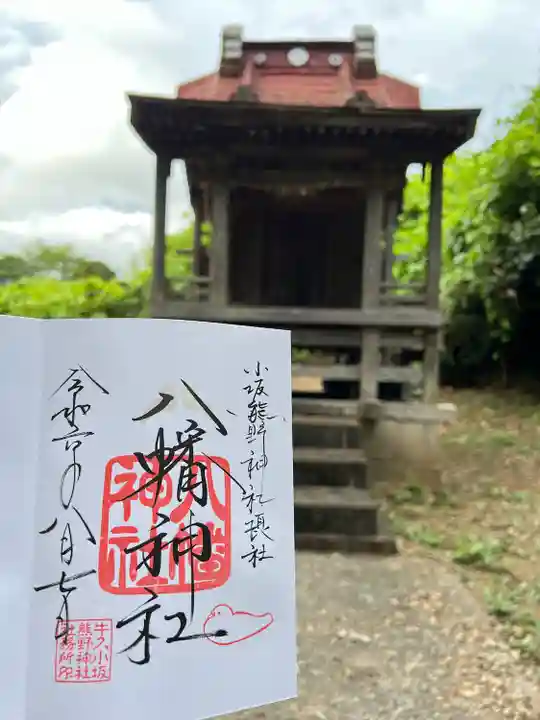 小坂熊野神社境社
八幡神社
八幡
神社
令和六年八月七日
牛久小坂
熊野神社
社務所印